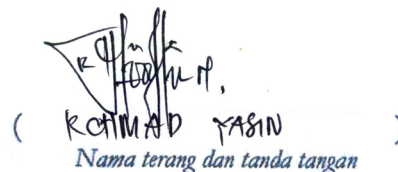 ( ROHMAD YASIN )
Nama terang dan tanda tangan